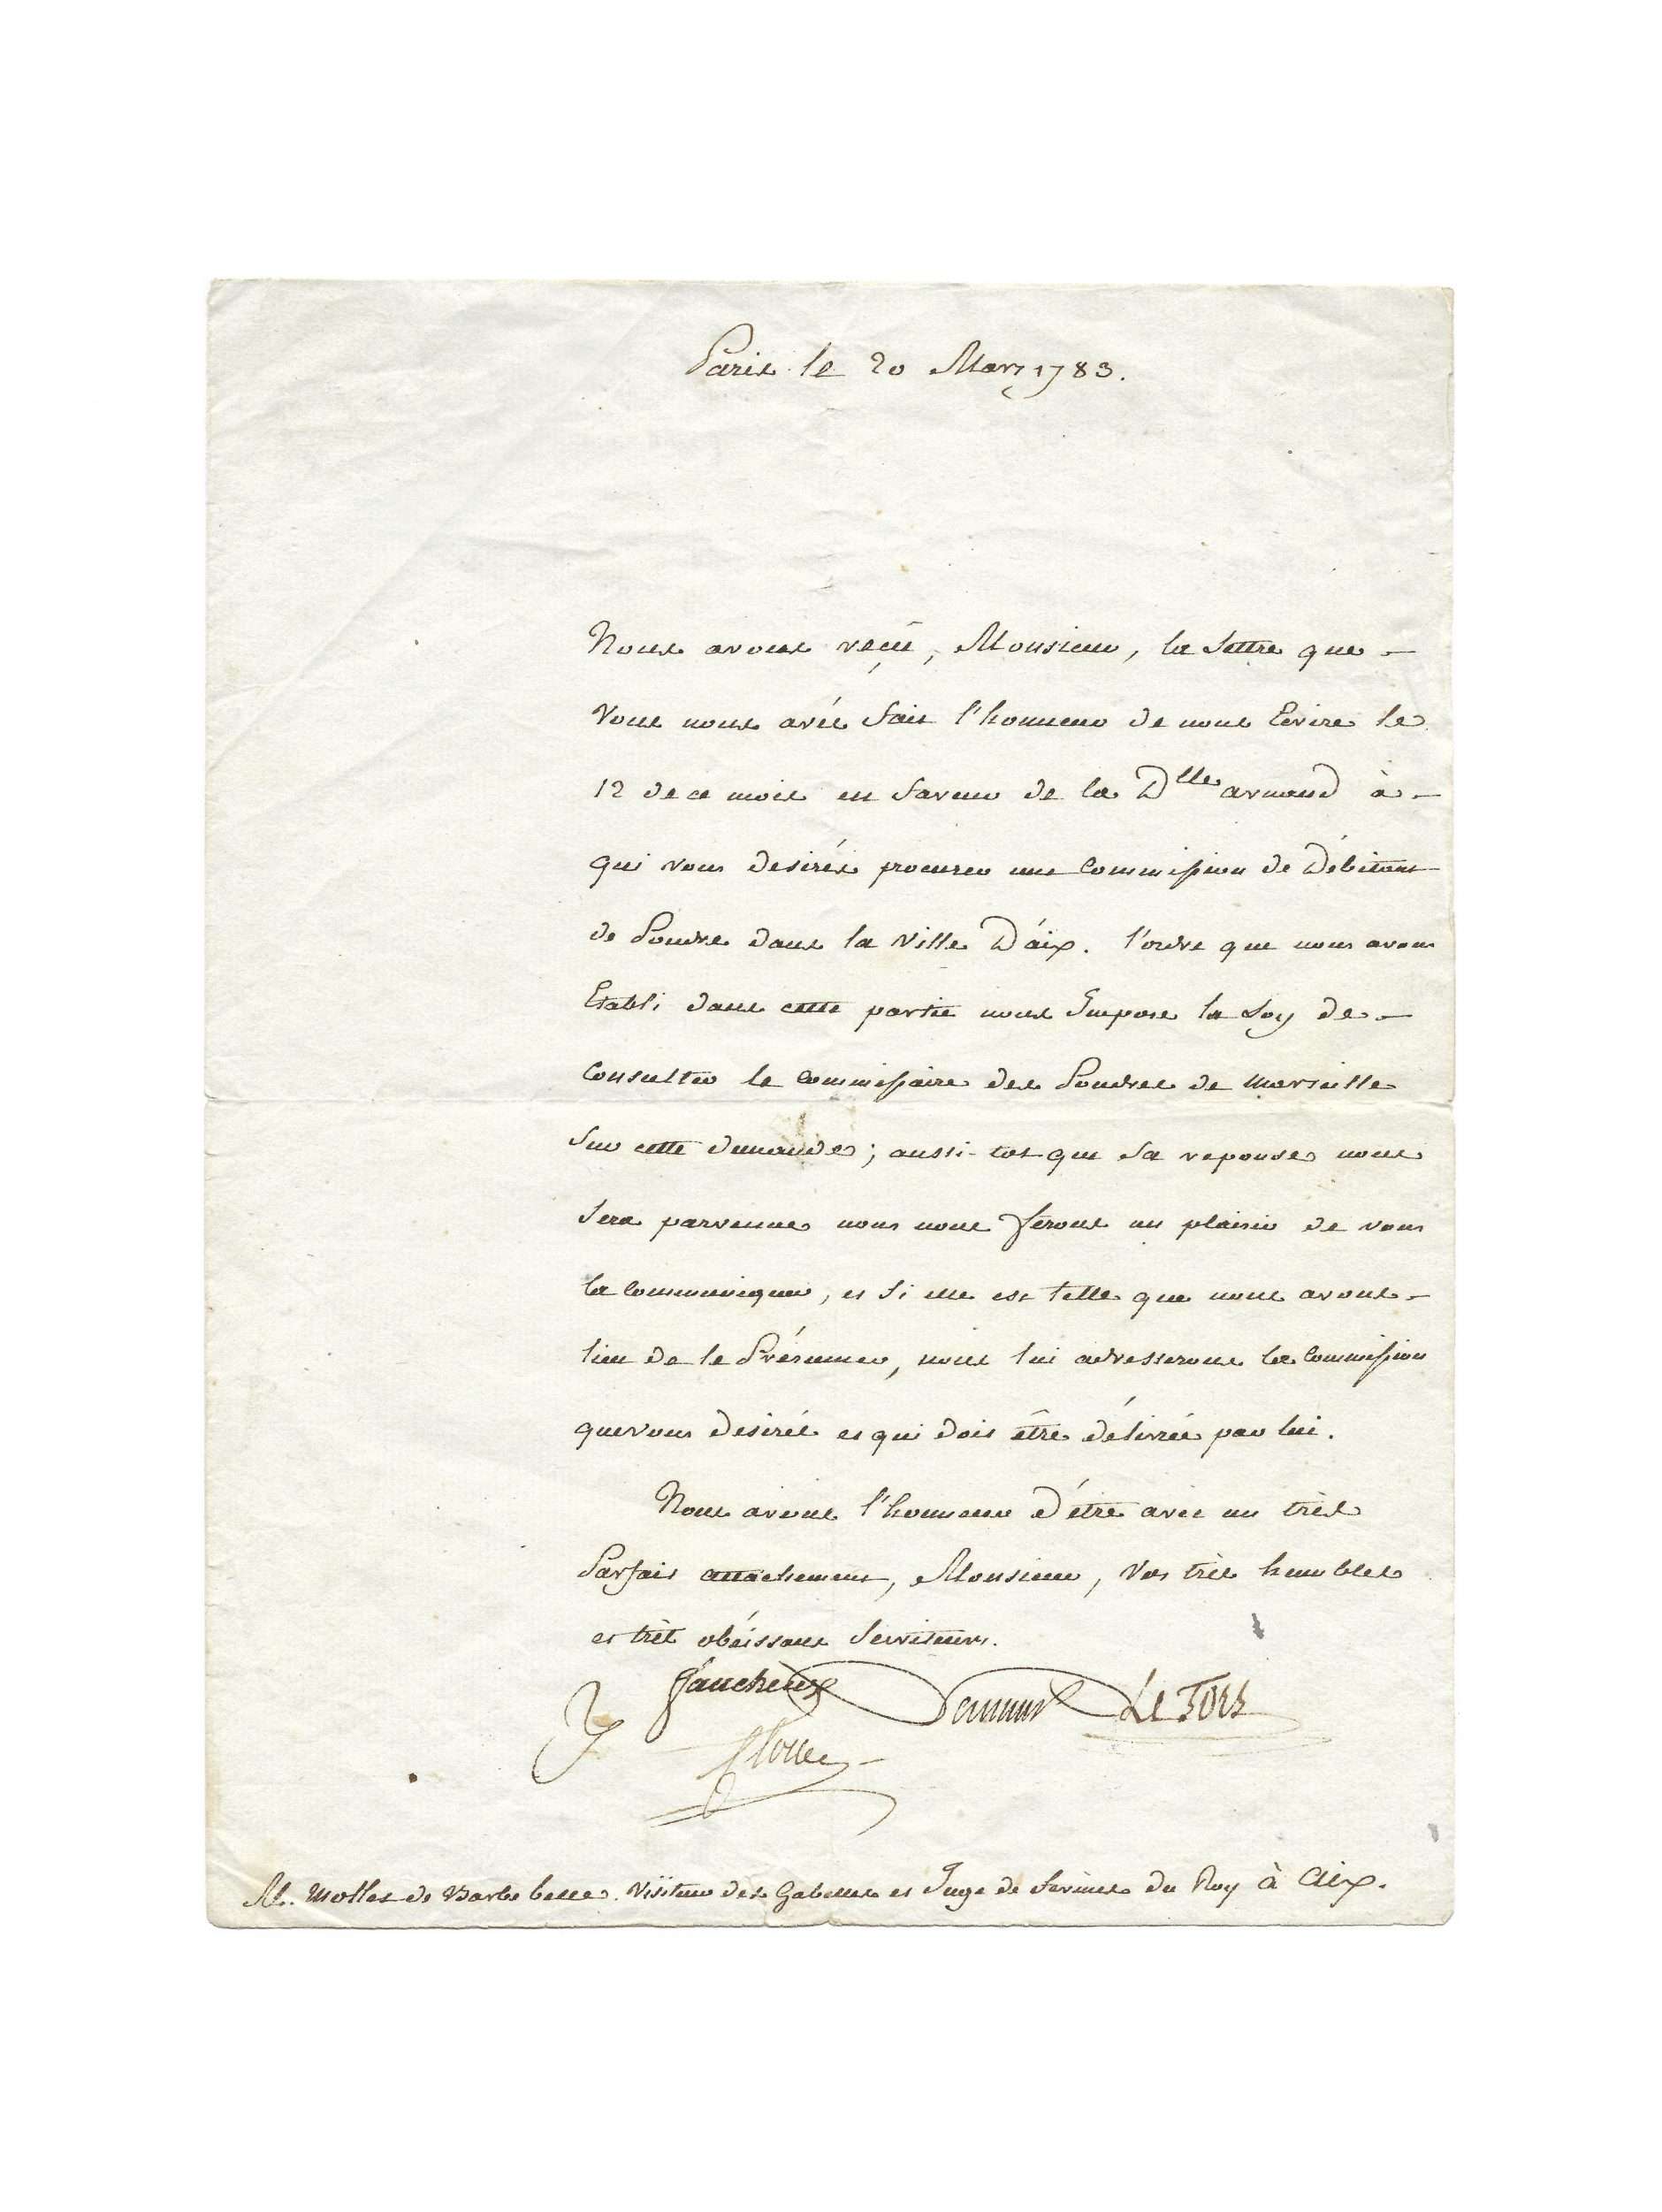 Paris le 20 Mars 1783.
Nous avons reçû, Monsieur, la Lettre que
Vous nous avés fait l'honneur de nous Ecrire le
12 de ce mois en faveur de la Dlle armand à
qui vous desirés procurer une Commission de Débitant
de Poudre dans la Ville D'aix. l'ordre que nous avons
Etabli dans cette partie nous Impose la Loy de
Consulter le Commissaire des Poudres de Marseille
Sur cette demande; aussi-tot que Sa reponse nous
Sera parvenue nous nous ferons un plaisir de vous
la Communiquer, et Si elle est telle que nous avons
lieu de le Présumer, nous lui adresserons la Commission
que vous desirés et qui doit être délivrée par lui.
Nous avons l'honneur d'être avec un très
Parfait attachement, Monsieur, Vos très humbles
et très obéissans Serviteurs.
faucheux Le Fort
Clouet
M. Mollet de Barbebelle. Visiteur des Gabelles et Juge de Fermes du Roy à Aix.